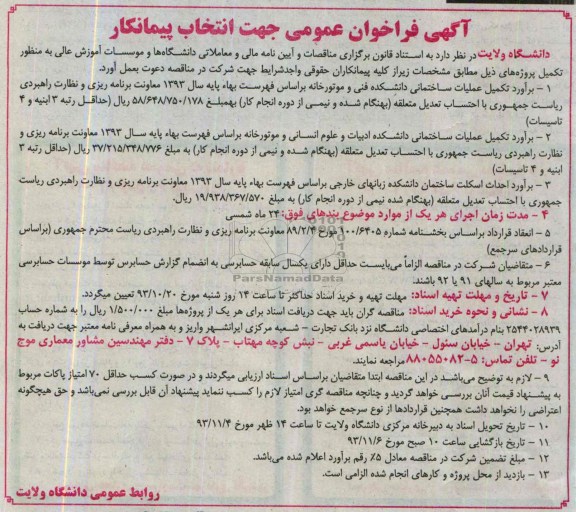 آگهی فراخوان عمومی جهت انتخاب پیمانکار
دانشگاه ولایت در نظر دارد به استناد قانون برگزاری مناقصات و آیین نامه مالی و معاملاتی دانشگاه‌ها و موسسات آموزش عالی به منظور
تکمیل پروژه‌های ذیل مطابق مشخصات زیراز کلیه پیمانکاران حقوقی واجدشرایط جهت شرکت در مناقصه دعوت بعمل آورد.
۱ – برآورد تکمیل عملیات ساختمانی دانشکده فنی و موتورخانه براساس فهرست بهاء پایه سال ۱۳۹۳ معاونت برنامه ریزی و نظارت راهبردی
ریاست جمهوری با احتساب تعدیل متعلقه (بهنگام شده و نیمی از دوره انجام کار) بهمبلغ ۵۸/۶۴۸/۷۵۰/۱۷۸ ریال (حداقل رتبه ۳ ابنیه و ۴
تاسیسات)
۲ – برآورد تکمیل عملیات ساختمانی دانشکده ادبیات و علوم انسانی و موتورخانه براساس فهرست بهاء پایه سال ۱۳۹۳ معاونت برنامه ریزی و
نظارت راهبردی ریاست جمهوری با احتساب تعدیل متعلقه (بهنگام شده و نیمی از دوره انجام کار) به مبلغ ۳۷/۲۱۵/۳۴۸/۷۷۶ ریال (حداقل رتبه ۳
ابنیه و ۴ تاسیسات)
۳ – برآورد احداث اسکلت ساختمان دانشکده زبانهای خارجی براساس فهرست بهاء پایه سال ۱۳۹۳ معاونت برنامه ریزی و نظارت راهبردی ریاست
جمهوری با احتساب تعدیل متعلقه (بهنگام شده نیمی از دوره انجام کار) به مبلغ ۱۹/۹۳۸/۳۶۷/۵۷۰ ریال.
۴ – مدت زمان اجرای هر یک از موارد موضوع بندهای فوق: ۲۴ ماه شمسی
۵ – انعقاد قرارداد براساس بخشنامه شماره ۱۰۰/۶۴۰۵ مورخ ۸۹/۲/۴ معاونت برنامه ریزی و نظارت راهبردی ریاست محترم جمهوری (براساس
قراردادهای سرجمع)
۶ – متقاضیان شرکت در مناقصه الزاماً می‌بایست حداقل دارای یکسال سابقه حسابرسی به انضمام گزارش حسابرس توسط موسسات حسابرسی
معتبر مربوط به سالهای ۹۱ یا ۹۲ باشند.
۷ – تاریخ و مهلت تهیه اسناد: مهلت تهیه و خرید اسناد حداکثر تا ساعت ۱۴ روز شنبه مورخ ۹۳/۱۰/۲۰ تعیین میگردد.
۸ – نشانی و نحوه خرید اسناد: مناقصه گران باید جهت دریافت اسناد برای هر یک از پروژه‌ها مبلغ ۱/۵۰۰/۰۰۰ ریال را به شماره حساب
۲۵۴۴۰۲۸۹۳۹ بنام درآمدهای اختصاصی دانشگاه نزد بانک تجارت – شعبه مرکزی ایرانشهر واریز و به همراه معرفی نامه معتبر جهت دریافت به
آدرس: تهران – خیابان سئول – خیابان یاسمی غربی – نبش کوچه مهتاب – پلاک ۷ – دفتر مهندسین مشاور معماری موج
نو – تلفن تماس: ۵–۸۸۰۵۵۰۸۲ مراجعه نمایند.
۹ – لازم به توضیح می‌باشد در این مناقصه ابتدا متقاضیان براساس اسناد ارزیابی میگردند و در صورت کسب حداقل ۷۰ امتیاز پاکات مربوط
به پیشنهاد قیمت آنان بررسی خواهد گردید و چنانچه مناقصه گری امتیاز لازم را کسب ننماید پیشنهاد آن قابل بررسی نمی‌باشد و حق هیچگونه
اعتراضی را نخواهد داشت همچنین قراردادها از نوع سرجمع خواهد بود.
۱۰ – تاریخ تحویل اسناد به دبیرخانه مرکزی دانشگاه ولایت تا ساعت ۱۴ ظهر مورخ ۹۳/۱۱/۴
۱۱ – تاریخ بازگشایی ساعت ۱۰ صبح مورخ ۹۳/۱۱/۶
۱۲ – مبلغ تضمین شرکت در مناقصه معادل ۵٪ رقم برآورد اعلام شده می‌باشد.
۱۳ – بازدید از محل پروژه و کارهای انجام شده الزامی است.
روابط عمومی دانشگاه ولایت
ParsNamadData